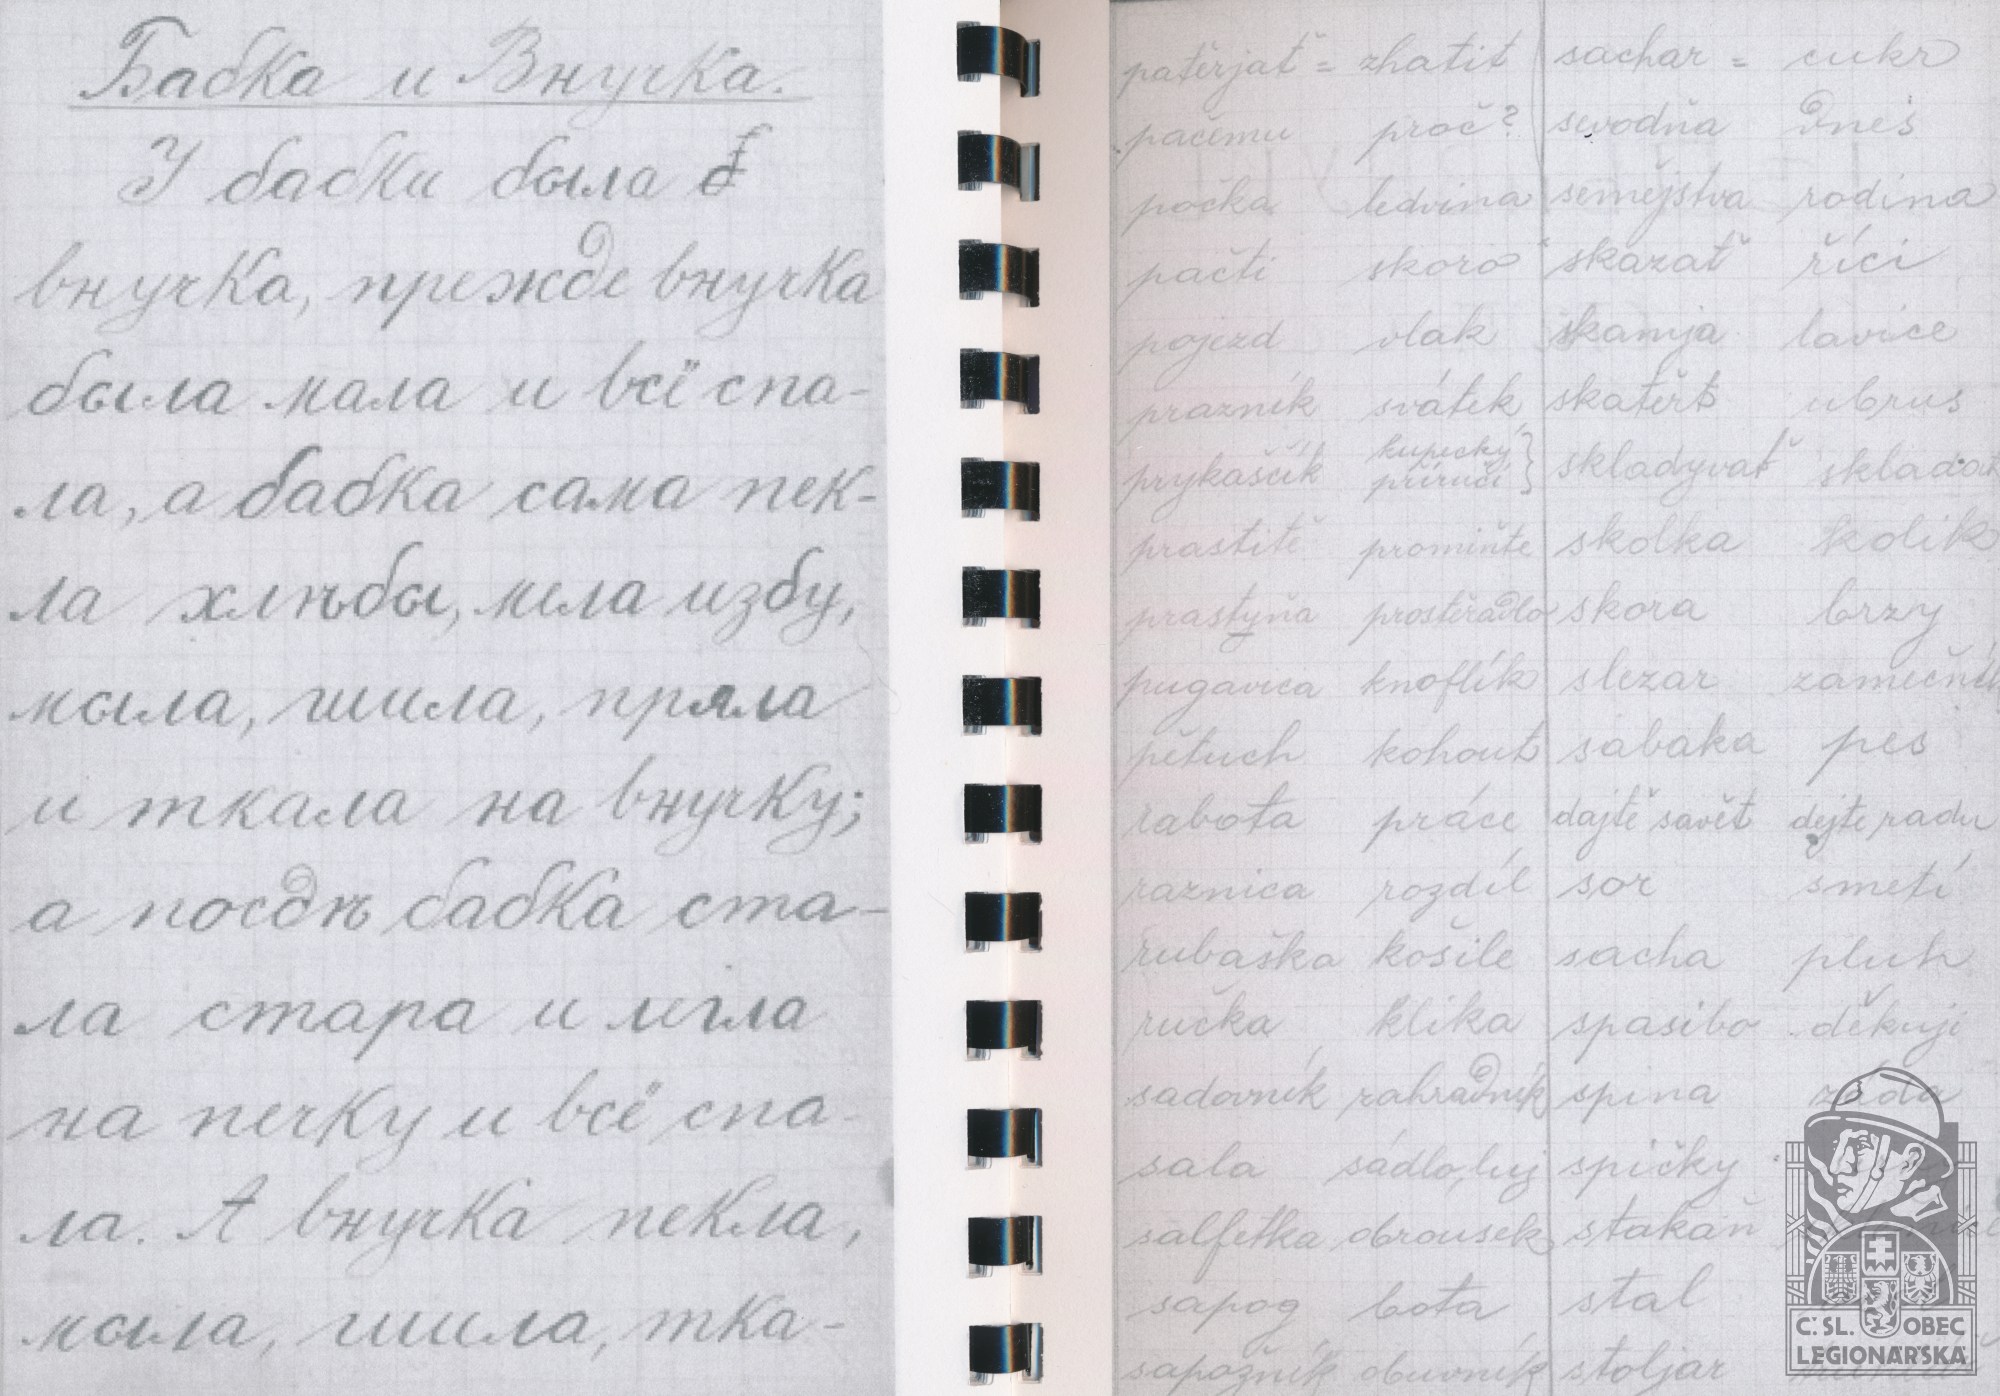 Бабка и Внучка.
У бабки была
внучка, прежде внучка
была мала и всё спа-
ла, а бабка сама пек-
ла хлѣбы, мела избу,
мыла, шила, пряла
и ткала на внучку;
а посдѣ бабка ста-
ла стара и легла
на печку и всё спа-
ла. А внучка пекла,
мыла, шила, тка-
patěrjať = zhatit
pačemu proč?
počka ledvina
pačti skoro
pojezd vlak
prazník svátek
prykaščík kupecký příručí }
prastitě promiňte
prastyňa prostěradlo
pugavica knoflík
pětuch kohout
rabota práce
raznica rozdíl
rubaška košile
ručka klika
sadovník zahradník
sala sádlo, luj
salfetka obrousek
sapog bota
sapožník obuvník
sachar = cukr
sevodňa dnes
seměǰstva rodina
skazať říci
skamja lavice
skatěrť ubrus
skladyvať skladat
skolka kolik
skora brzy
slezar zámečník
sabaka pes
dajtě savět dejte radu
sor smetí
sacha pluh
spasibo děkuji
spina záda
spičky
stakaň
stal
stoljar
Č. SL. OBEC
LEGIONÁŘSKÁ